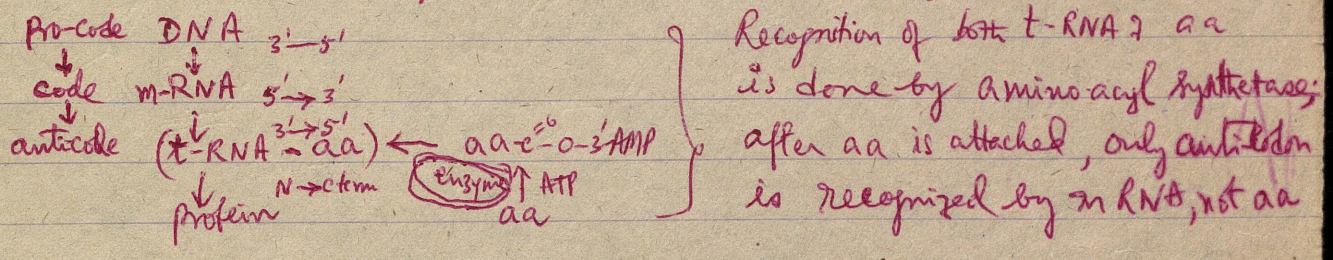 Pro-code DNA 3'—5'
↓ ↓
code m-RNA 5'→3'
↓ ↓ 3'→5'
anticode (t-RNA - aa) ← aa-c=o-o-3'AMP
↓ N→C term enzyme ↑ ATP
protein aa
Recognition of both t-RNA & aa
is done by amino-acyl synthetase;
after aa is attached, only anticodon
is recognized by mRNA, not aa